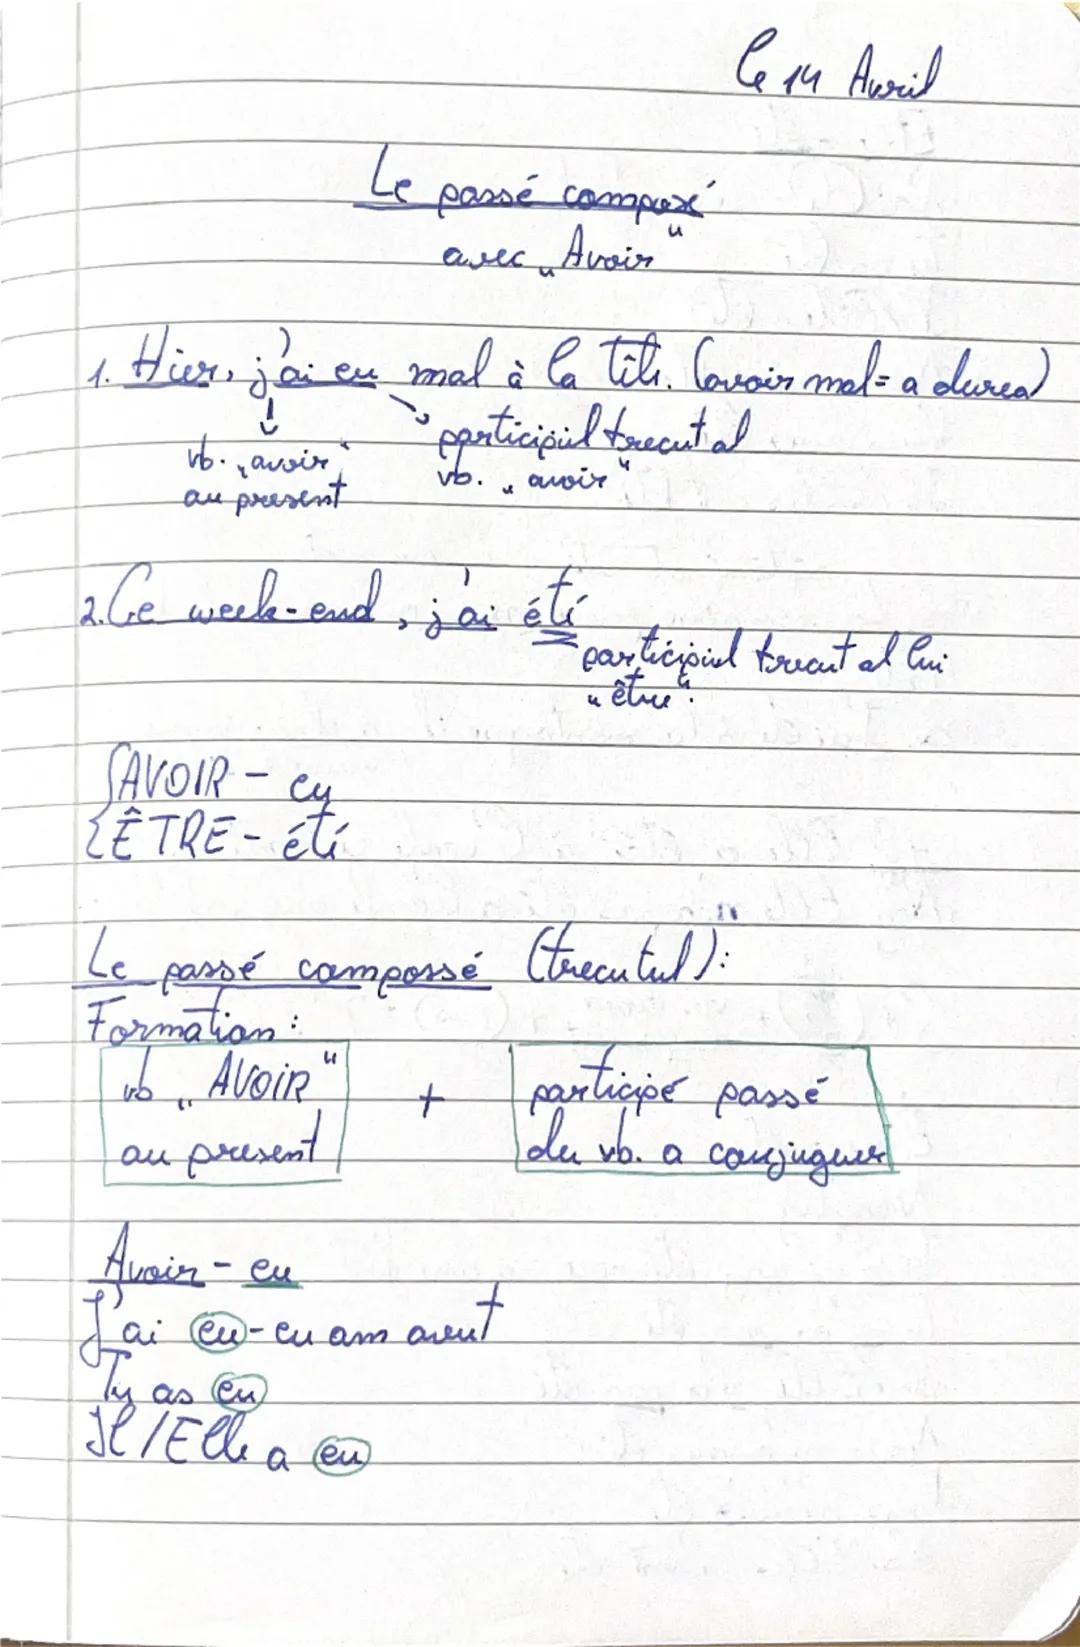 Le 14 Avril
Le passé composé
avec „Avoir"
1. Hier, j'ai eu mal à la tête. (avoir mal = a durea)
vb. „avoir" participiul trecut al
au present vb. „avoir"
2. Ce week-end, j'ai été
participiul trecut al lui
„être".
AVOIR - eu
ÊTRE - été
Le passé compossé (trecutul):
Formation:
vb „AVOIR" + participé passé
au present du vb. a conjuguer
Avoir - eu
J'ai eu - eu am avut
Tu as eu
Il/Elle a eu